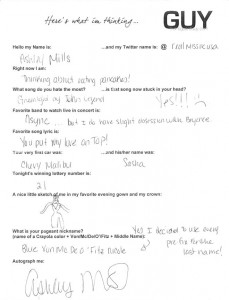 Here's what im thinking...
GUY
Hello my Name is: ...and my Twitter name is: @ realmissmeusa
Ashley Mills
Right now I am:
Thinking about eating pancakes!
What song do you hate the most? ...is that song now stuck in your head?
by John Legend Yes!!!
Favorite band to watch live in concert is:
Nsync... but I do have slight obsession with Beyonce
Favorite song lyric is:
You put my love on Top!
Your very first car was: ...and his/her name was:
Chevy Malibu Sasha
Tonight's winning lottery number is:
21
A nice little sketch of me in my favorite evening gown and my crown:
What is your pageant nickname?
(name of a Crayola color + Von/Mc/De/O'/Fitz + Middle Name):
Blue Von Mc De O'Fitz Nicole
Yes I decided to use every
prefix for the
last name!
Autograph me:
Ashley M